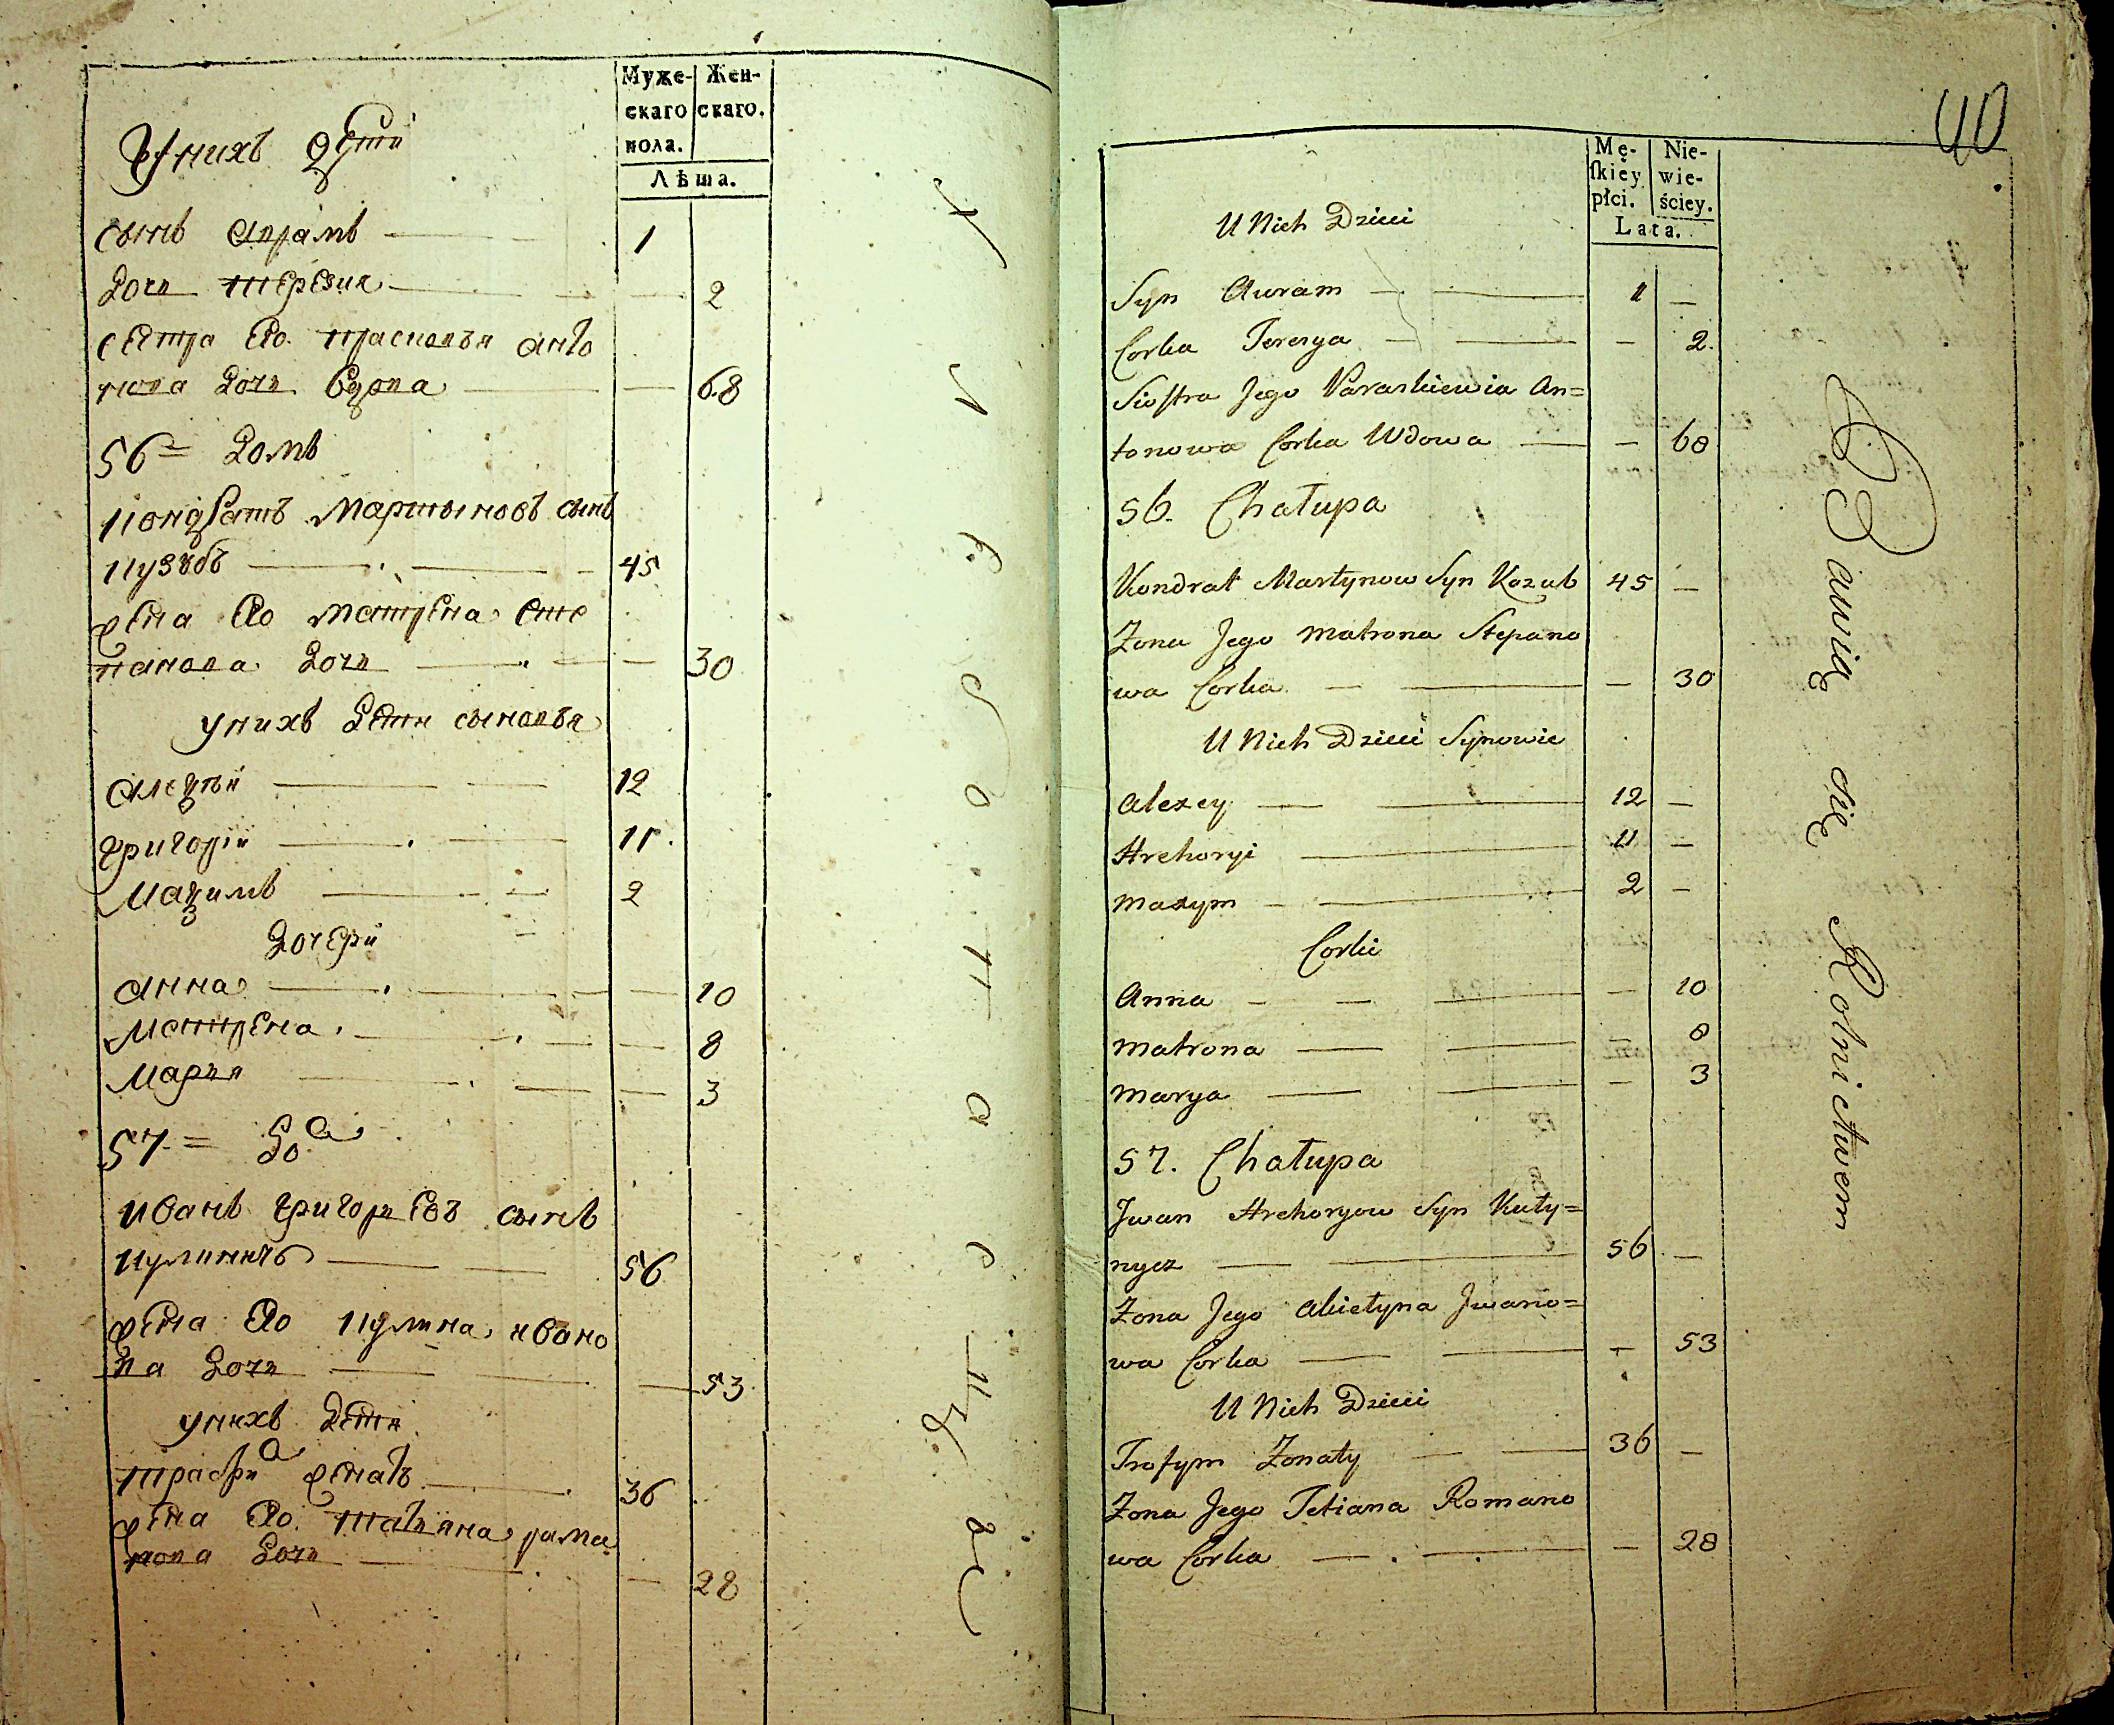 Муже- Жен-
скаго скаго.
пола.
Лѣта.
У нихъ дѣти
сынъ Апрамъ 1
дочь терезия 2
сестра его парасковья анто
нова дочь вдова 68
56 = домъ
Кондратъ Мартыновъ сынъ
Кузубъ 45
жена его матрена сте
панова дочь 30
у нихъ дети сыновья
алеѯѣй 12
григорій 11.
Маѯимъ 2
дочери
анна 10
Матрена 8
Мария 3
57 = до
иванъ григорьевъ сынъ
Кулиничъ 56
жена его Кулина ивано
ва дочь 53
у нихъ дети
трафи женатъ 36
жена его татияна рома
нова дочь 28
40
Mę- Nie-
ſkiey wie-
płci. ściey.
Lata.
U Nich Dzieci
Syn Awram — 1 —
Corka Terezya — — 2.
Siostra Jego Paraskiewia An=
tonowa Corka Wdowa — — 68
56. Chałupa
Kondrat Martynow Syn Kozub 45 —
Zona Jego Matrona Stepano
wa Corka — — 30
U Nich Dzieci Synowie
Alexey — 12 —
Hrehoryi — 11 —
Maxym — 2 —
Corki
Anna — — 10
Matrona — — 8
Marya — — 3
57. Chałupa
Jwan Hrehoryow Syn Kuły=
nycz — 56 —
Zona Jego Akiełyna Jwano=
wa Corka — — 53
U Nich Dzieci
Trofym Zonaty — 36 —
Zona Jego Tetiana Romano
wa Corka — — 28
Bawią się Rolnictwem